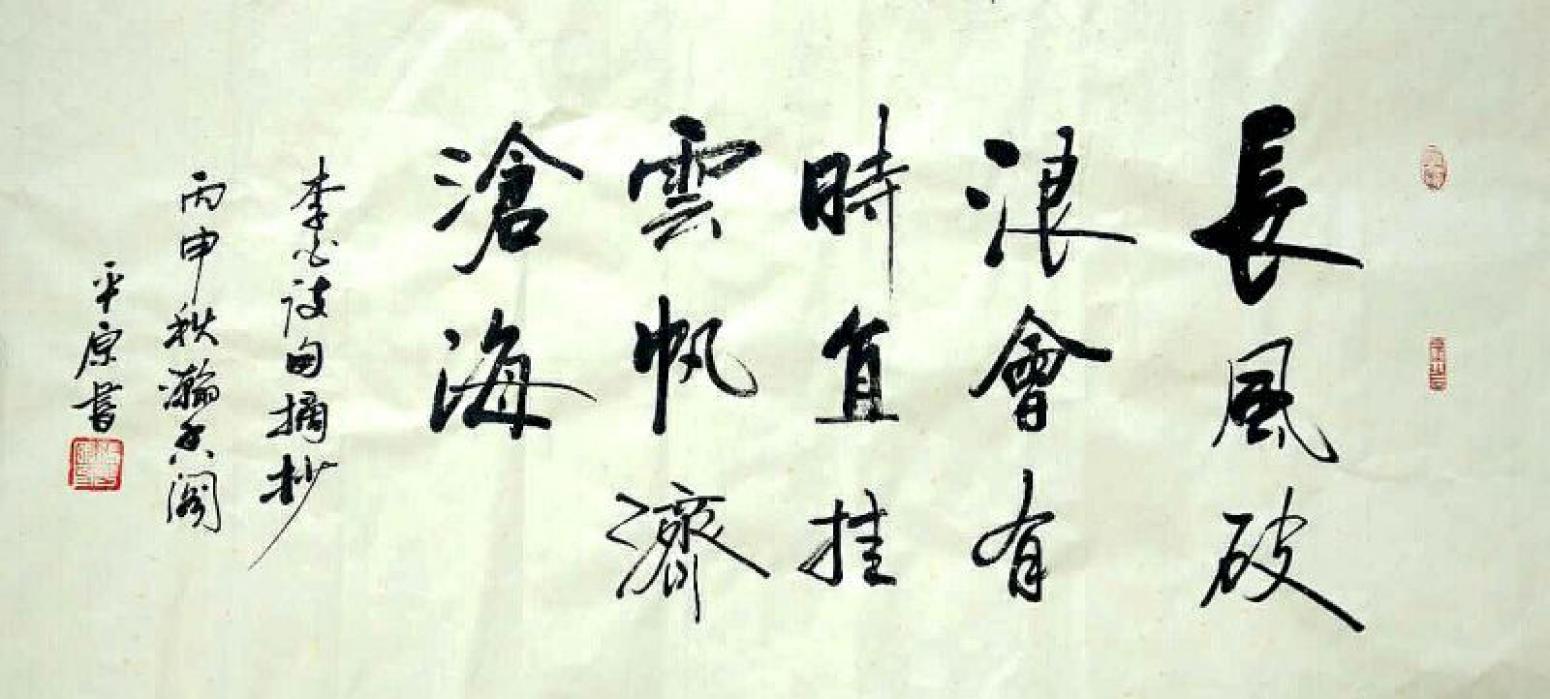 長風破
浪會有
時直挂
雲帆濟
滄海
李白诗句摘抄
丙申秋瀚香阁
平原书